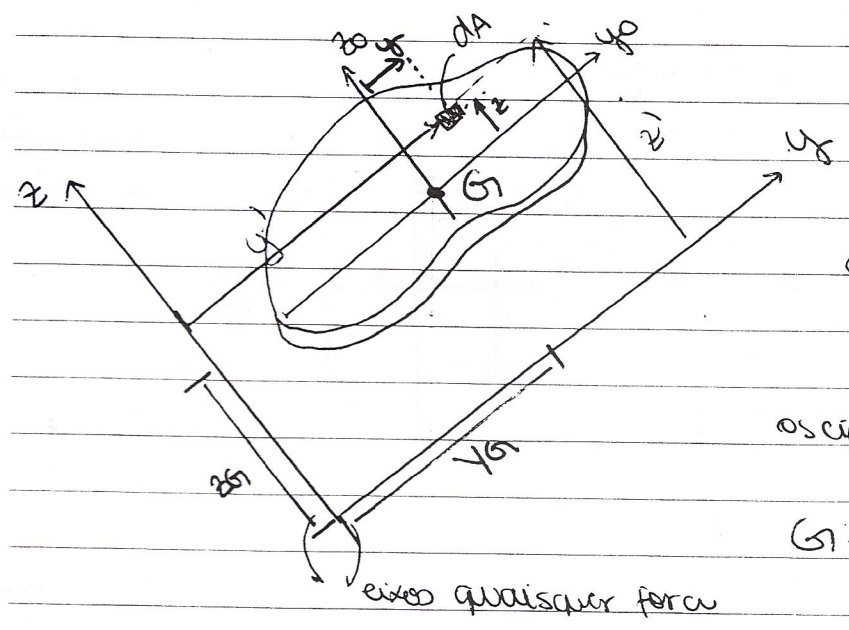 zo
y
dA
yo
z
G
z'
y
z
y'
YG
zG
osci
G:
eixos quaisquer fora